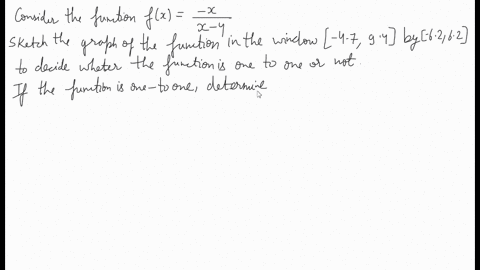 Consider the function f(x) = -x / x-4
Sketch the graph of the function in the window [-4.7, 9.4] by [-6.2, 6.2]
to decide wheter the function is one to one or not.
If the function is one-to one, determine